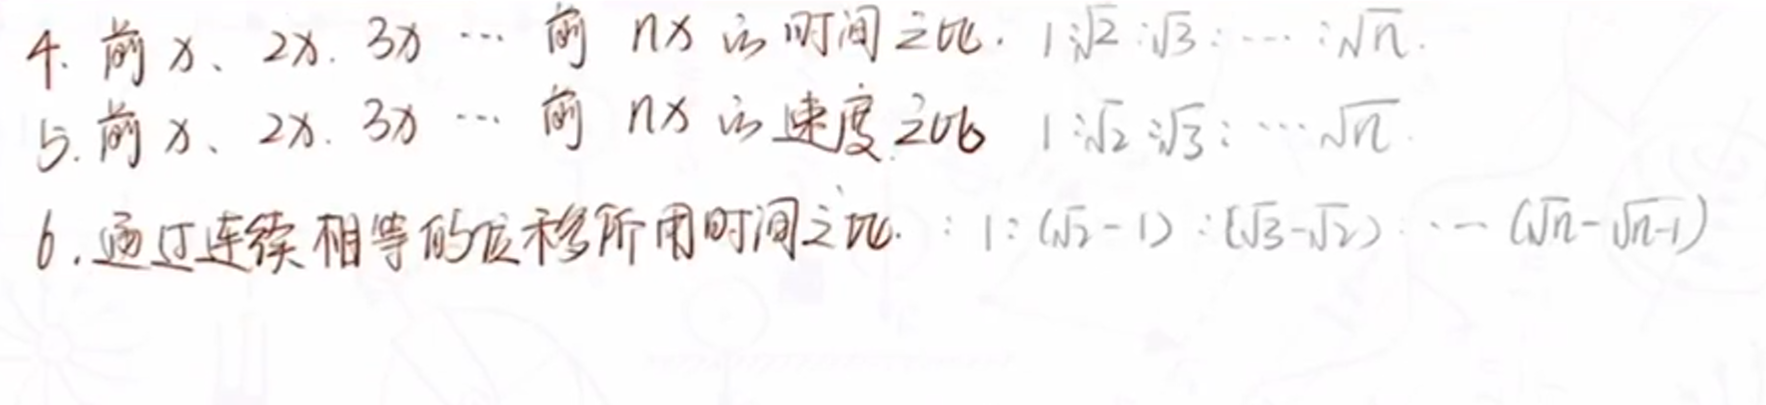 4. 前x、2x. 3x … 前 nx 的时间之比. 1:√2:√3:…:√n.
5. 前x、2x. 3x … 前 nx 的速度之比 1:√2:√3:…√n.
6. 通过连续相等的位移所用时间之比. : 1:(√2-1):(√3-√2)…(√n-√n-1)